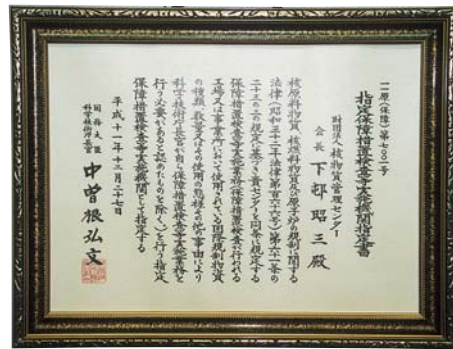 一一原(保障)第七〇一号
指定保障措置検査等実施機関指定書
財団法人核物質管理センター
会長 下邨昭三殿
核原料物質、核燃料物質及び原子炉の規制に関する
法律(昭和三十二年法律第百六十六号)第六十一条の
二十三の二の規定に基づき貴センターを同条に規定する
保障措置検査等実施業務(保障措置検査が行われる
工場又は事業所において使用されている国際規制物資
の種類、数量又はその使用の態様その他の事由により
科学技術庁長官が自ら保障措置検査等実施業務を
行う必要があると認めたものを除く。)を行う指定
保障措置検査等実施機関として指定する
平成十一年十二月二十七日
国務大臣
科学技術庁長官
中曽根弘文